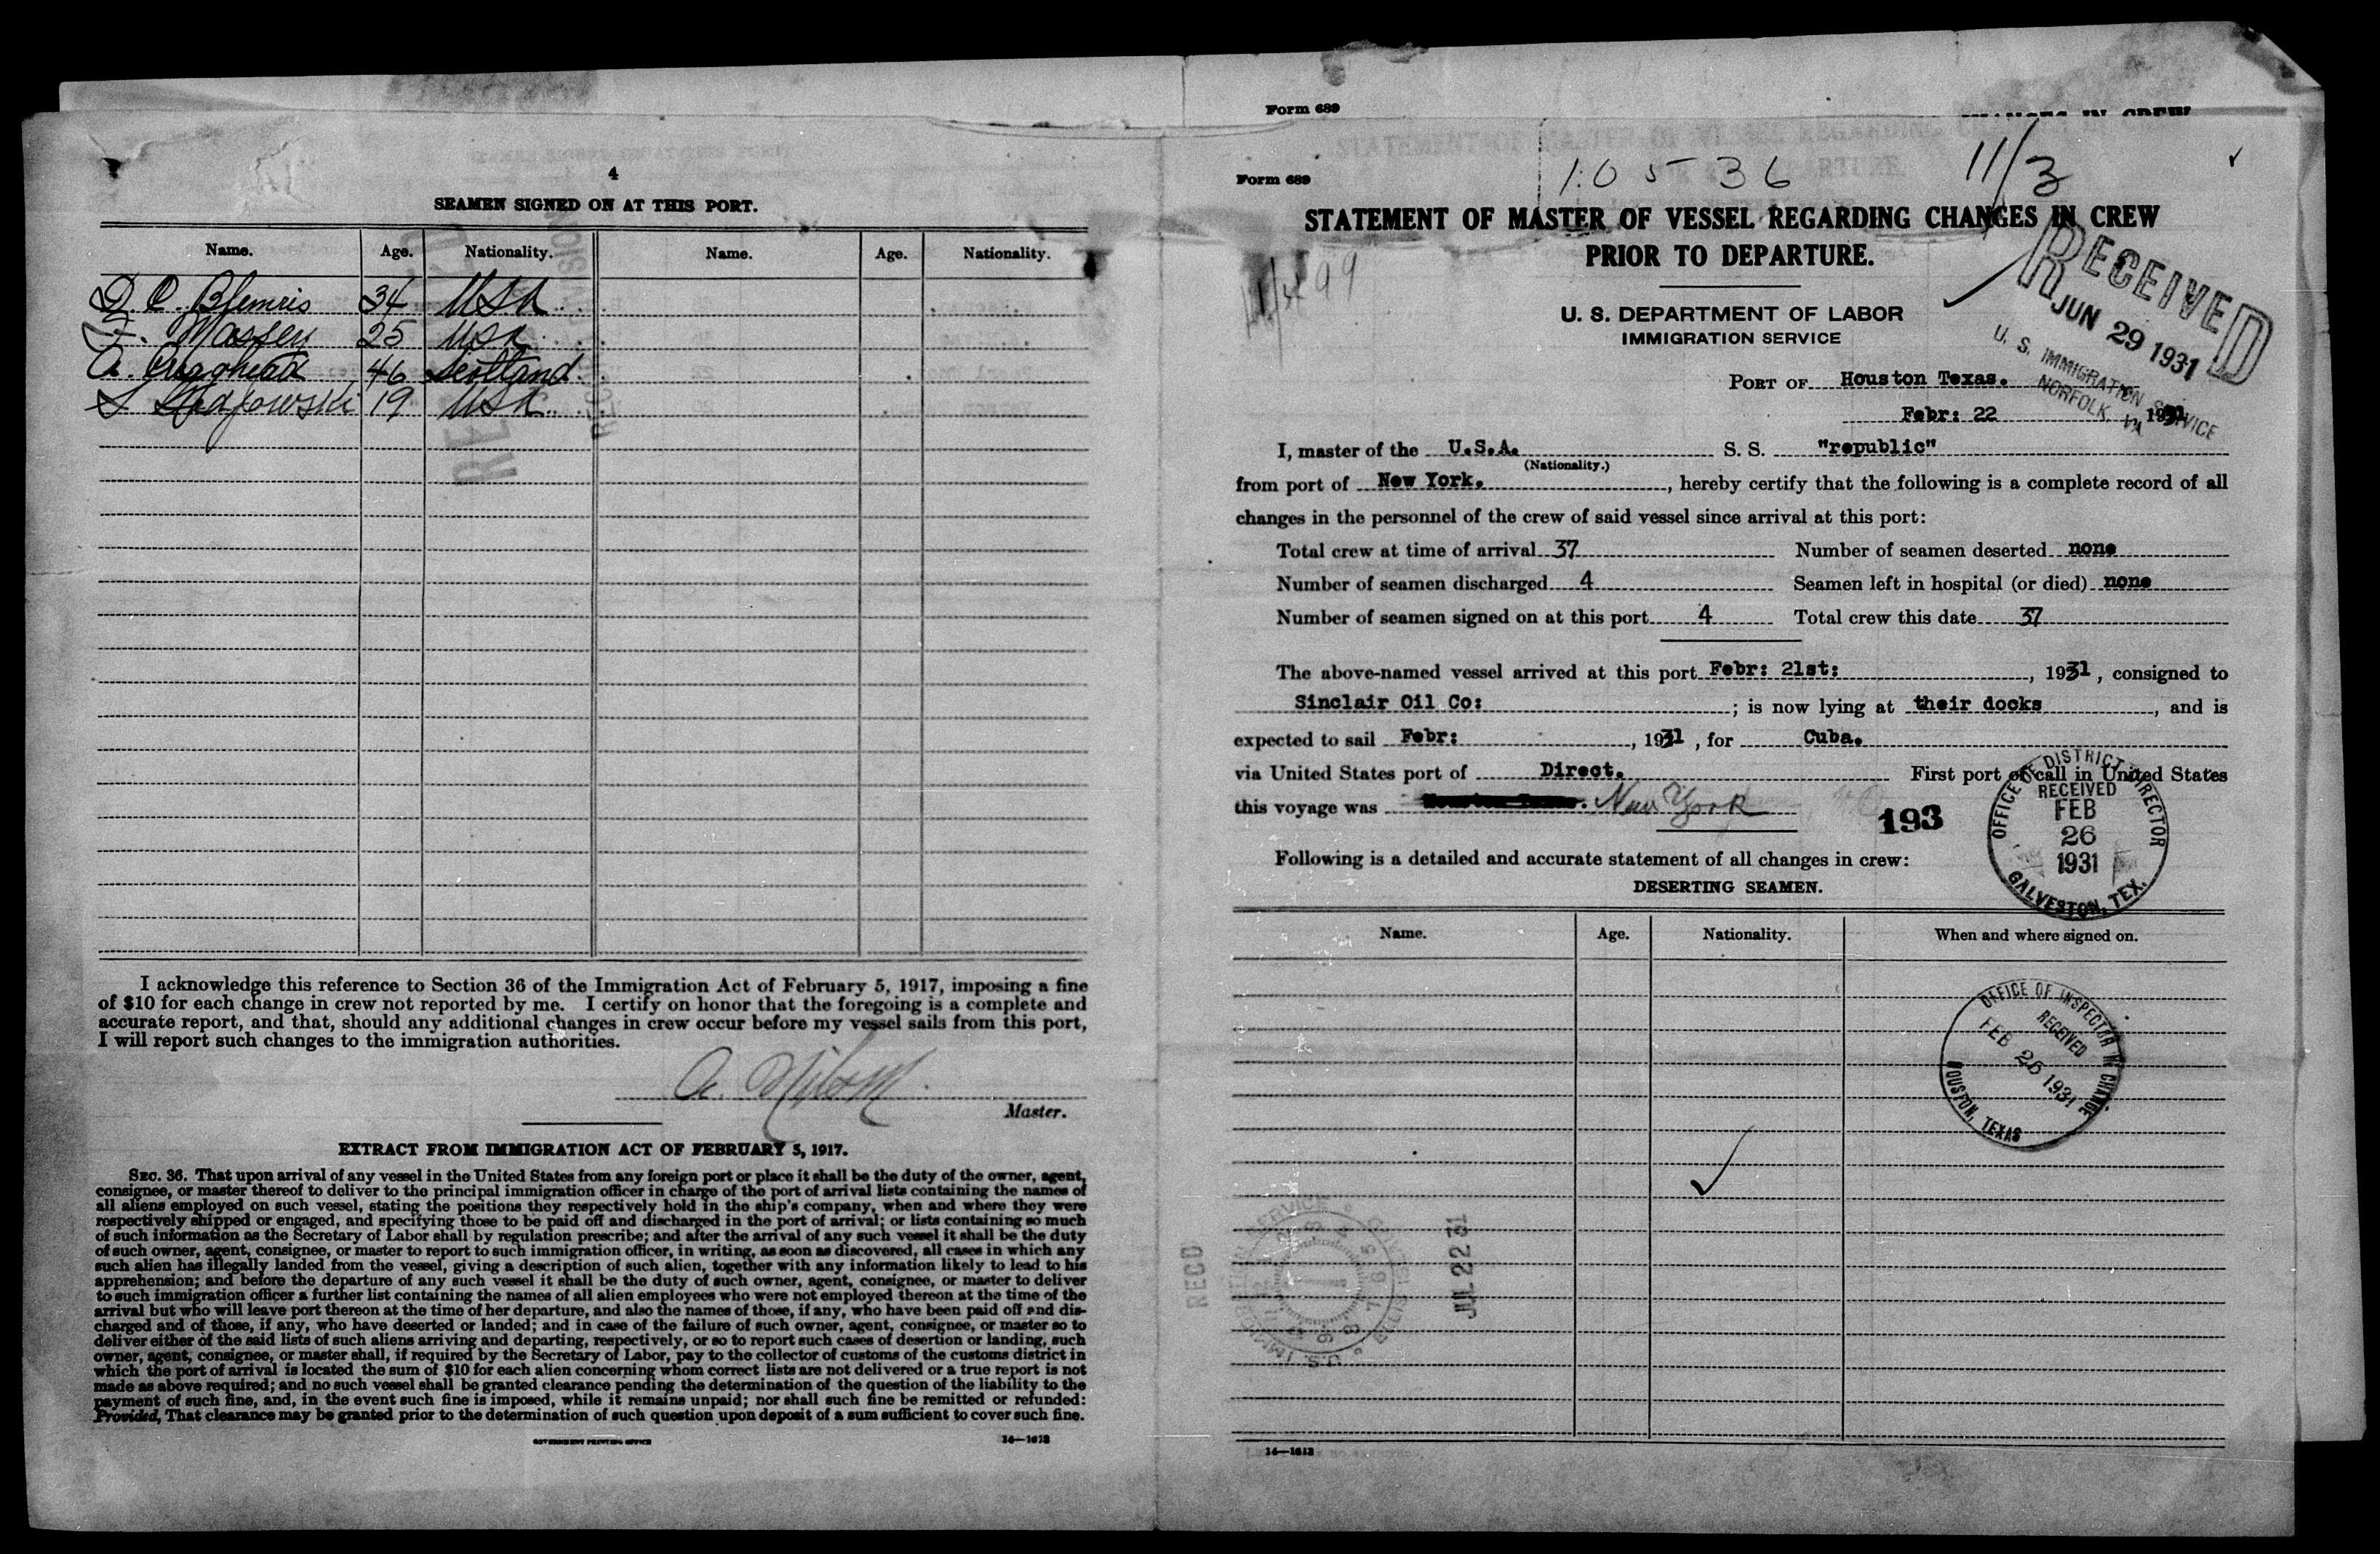 4
SEAMEN SIGNED ON AT THIS PORT.
Name. Age. Nationality. Name. Age. Nationality.
34 USA
F. Massey 25 USA
A. Craghead 46 Scotland
S. 19 USA
I acknowledge this reference to Section 36 of the Immigration Act of February 5, 1917, imposing a fine
of $10 for each change in crew not reported by me. I certify on honor that the foregoing is a complete and
accurate report, and that, should any additional changes in crew occur before my vessel sails from this port,
I will report such changes to the immigration authorities.
A.
Master.
EXTRACT FROM IMMIGRATION ACT OF FEBRUARY 5, 1917.
SEC. 36. That upon arrival of any vessel in the United States from any foreign port or place it shall be the duty of the owner, agent,
consignee, or master thereof to deliver to the principal immigration officer in charge of the port of arrival lists containing the names of
all aliens employed on such vessel, stating the positions they respectively hold in the ship's company, when and where they were
respectively shipped or engaged, and specifying those to be paid off and discharged in the port of arrival; or lists containing so much
of such information as the Secretary of Labor shall by regulation prescribe; and after the arrival of any such vessel it shall be the duty
of such owner, agent, consignee, or master to report to such immigration officer, in writing, as soon as discovered, all cases in which any
such alien has illegally landed from the vessel, giving a description of such alien, together with any information likely to lead to his
apprehension; and before the departure of any such vessel it shall be the duty of such owner, agent, consignee, or master to deliver
to such immigration officer a further list containing the names of all alien employees who were not employed thereon at the time of the
arrival but who will leave port thereon at the time of her departure, and also the names of those, if any, who have been paid off and dis-
charged and of those, if any, who have deserted or landed; and in case of the failure of such owner, agent, consignee, or master so to
deliver either of the said lists of such aliens arriving and departing, respectively, or so to report such cases of desertion or landing, such
owner, agent, consignee, or master shall, if required by the Secretary of Labor, pay to the collector of customs of the customs district in
which the port of arrival is located the sum of $10 for each alien concerning whom correct lists are not delivered or a true report is not
made as above required; and no such vessel shall be granted clearance pending the determination of the question of the liability to the
payment of such fine, and, in the event such fine is imposed, while it remains unpaid; nor shall such fine be remitted or refunded:
Provided, That clearance may be granted prior to the determination of such question upon deposit of a sum sufficient to cover such fine.
GOVERNMENT PRINTING OFFICE 14—1613
Form 689
CHANGES IN CREW
Form 689
10536 11/3
STATEMENT OF MASTER OF VESSEL REGARDING CHANGES IN CREW
PRIOR TO DEPARTURE.
99
U. S. DEPARTMENT OF LABOR
IMMIGRATION SERVICE
RECEIVED
JUN 29 1931
U. S. IMMIGRATION SERVICE
NORFOLK, VA
PORT OF Houston Texas.
Febr: 22 1931
I, master of the U.S.A. S. S. "republic"
(Nationality.)
from port of New York. , hereby certify that the following is a complete record of all
changes in the personnel of the crew of said vessel since arrival at this port:
Total crew at time of arrival 37 Number of seamen deserted none
Number of seamen discharged 4 Seamen left in hospital (or died) none
Number of seamen signed on at this port 4 Total crew this date 37
The above-named vessel arrived at this port Febr: 21st: , 1931 , consigned to
Sinclair Oil Co: ; is now lying at their docks , and is
expected to sail Febr: , 1931 , for Cuba.
via United States port of Direct. First port of call in United States
this voyage was New York
193
OFFICE OF DISTRICT DIRECTOR
RECEIVED
FEB
26
1931
GALVESTON, TEX.
Following is a detailed and accurate statement of all changes in crew:
DESERTING SEAMEN.
Name. Age. Nationality. When and where signed on.
OFFICE OF INSPECTOR IN CHARGE
RECEIVED
FEB 25 1931
HOUSTON, TEXAS
RECD
JUL 22 31
14—1613